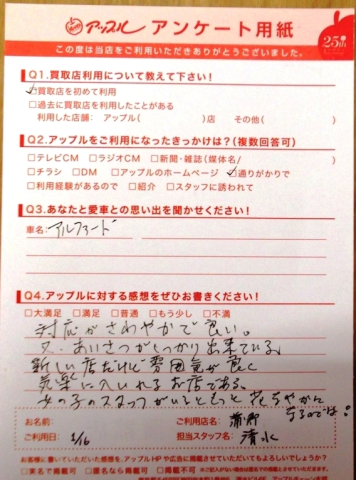 アップル アンケート用紙
25th
この度は当店をご利用いただきありがとうございました。
Q1.買取店利用について教えて下さい!
☑買取店を初めて利用
□過去に買取店を利用したことがある
利用した店舗: アップル( )店 その他( )
Q2.アップルをご利用になったきっかけは?(複数回答可)
□テレビCM □ラジオCM □新聞・雑誌(媒体名/ )
□チラシ □DM □アップルのホームページ ☑通りがかりで
□利用経験があるので □紹介 □スタッフに誘われて
Q3.あなたと愛車との思い出を聞かせください!
車名: アルファード
Q4.アップルに対する感想をぜひお書きください!
□大満足 □満足 □普通 □もう少し □不満
対応がさわやかで良い。
又、あいさつがしっかり出来ている。
新しい店だけど雰囲気が良く
気楽に入いれるお店である。
女の子のスタッフがいるともっと花ちやかに
なるのでは!
お名前: ご利用店名: 蒲郡
ご利用日: 2/16 担当スタッフ名: 清水
お客様に書いていただいた感想を、アップルHPや広告に掲載させていただいてもよろしいでしょうか?
□実名で掲載可 □匿名なら掲載可 □掲載不可